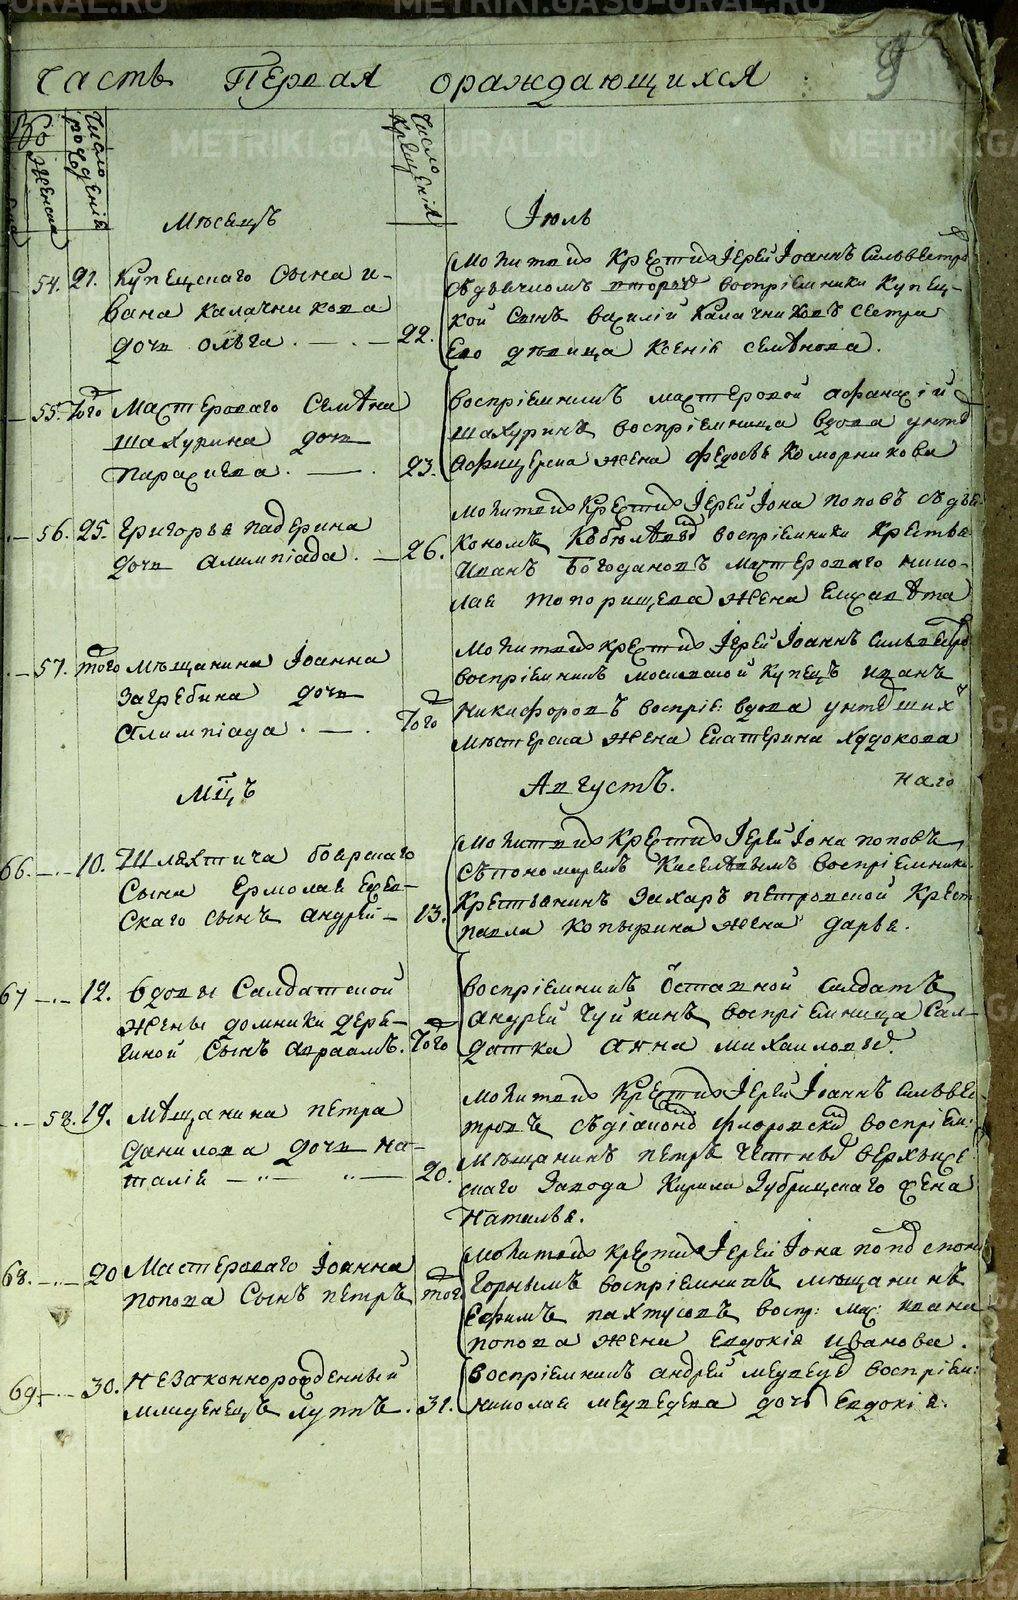 METRIKI.GASO-URAL.RU
9
Часть Первая ораждающихся
Число рожденія
Число крещенія
Женска
Мѣсецъ Іюль
54. 21. Купецкаго Сына И-
вана Калачникова
дочь Ольга. 22.
Молитв. и Крест. Іерей Іоаннъ Сильвестро
воспріемники Купец-
кой Сынъ Василій Калачниковъ сестра
Его дѣвица Ксенія Семѣнова.
55. Того Мастероваго Семѣна
Шахурина дочь
Парасиева. 23.
воспріемникъ мастеровой Афанасій
Шахуринъ воспріемница вдова унтѣ
Афицерска жена Федосья Коморникова
56. 25. Григорья Падерина
дочь Алимпіада. 26.
Молитв. и Крест. Іерей Іона Поповъ съ дья-
кономъ воспріемники Крестья
Иванъ Богодановъ Мастероваго Нико-
лая Топорищева жена Елисавѣта
57. того Мѣщанина Іоанна
Загребина дочь
Алимпіада. Того
Молитв. и крест. Іерей Іоаннъ Сильвестро
воспріемникъ Московской Купецъ Иванъ
Никифоровъ воспріе: вдова унтѣ ших
Мѣстерска жена Екатерина Худокова
Мцъ Августъ. наго
66. 10. Шляхтича боярскаго
Сына Ермолая
скаго сынъ Андрей 13.
Молитв. и Крест. Іерей Іона Поповъ
съ пономаремъ Киселѣвымъ воспріемники
Крестьянинъ Захаръ Петровской Крест
Павла Копырина жена Дарья.
67 12. Вдовы Салдатской
жены Домники Деря-
гиной Сынъ Авраамъ. Того
воспріемникъ Отставной Салдатъ
Андрей Чуйкинъ воспріемница Сал-
датка Анна Михаилова.
58. 19. Мѣщанина Петра
Данилова дочь На-
талія 20.
Молитв. и Крест. Іерей Іоаннъ Сильвес-
тровъ съ діакон Флоровски воспріем:
Мѣщанинъ Петръ верхъисе
скаго Завода Кирила Зубрицкаго жена
Наталья.
68. 20 Мастероваго Іоанна
Попова Сынъ Петръ того
Молитв. и крест. Іерей Іона Попо с поно
Горнымъ воспріемникъ мѣщанинъ
Ефимъ Пахтусовъ воспр: мас: Ивана
Попова жена Евдокія Иванова.
69. 30. Незаконнорожденный
младенецъ Луппъ. 31.
воспріемникъ Андрей Медведе воспріем:
Николая Медведева дочь Евдокія.